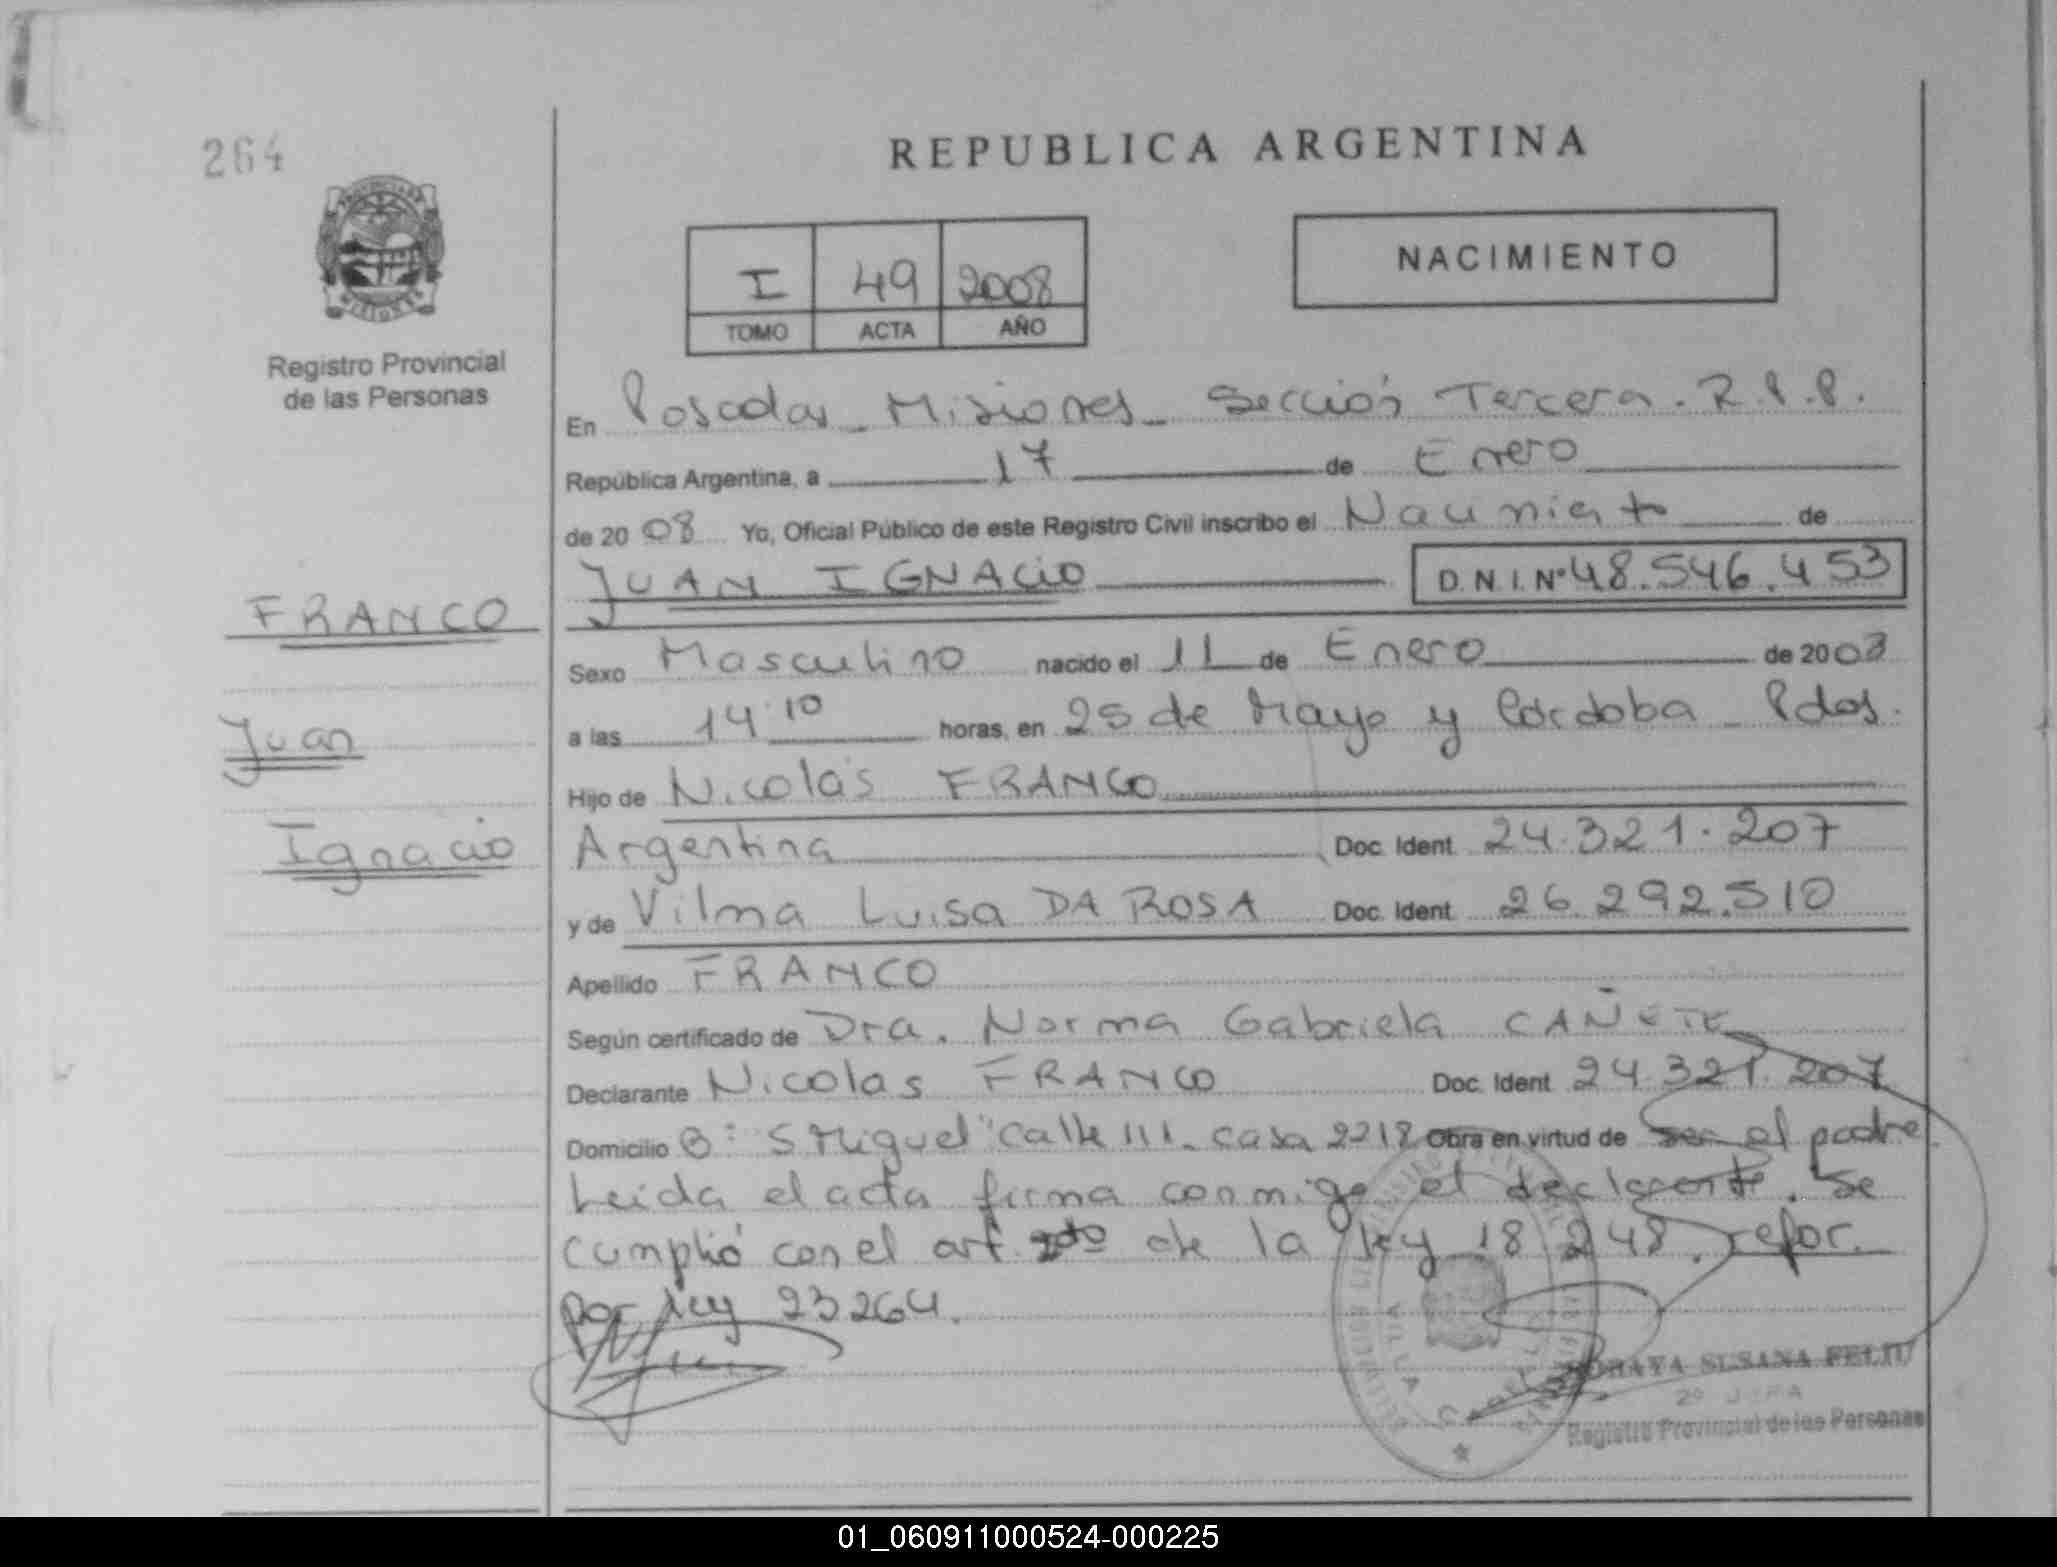 264
REPUBLICA ARGENTINA
PROVINCIA DE
MISIONES
Registro Provincial
de las Personas
I 49 2008
TOMO ACTA AÑO
NACIMIENTO
En Posadas - Misiones - Sección Tercera. R.P.P.
República Argentina, a 17 de Enero
de 2008 Yo, Oficial Público de este Registro Civil inscribo el Nacimiento de
JUAN IGNACIO D.N.I.Nº 48.546.453
FRANCO
Juan
Ignacio
Sexo Masculino nacido el 11 de Enero de 2008
a las 14:10 horas, en 25 de Mayo y Córdoba - Pdas.
Hijo de Nicolás FRANCO
Argentina Doc. Ident. 24.321.207
y de Vilma Luisa DA ROSA Doc. Ident. 26.292.510
Apellido FRANCO
Según certificado de Dra. Norma Gabriela CAÑETE
Declarante Nicolas FRANCO Doc. Ident. 24.321.207
Domicilio Bº S Miguel Calle 111 - casa 2218 Obra en virtud de ser el padre.
Leida el acta firma conmigo el declarante. Se
cumplió con el art de la ley 18 248. refor.
por ley 23264.
SUSANA FELIU
Registro Provincial de las Personas
01_060911000524-000225